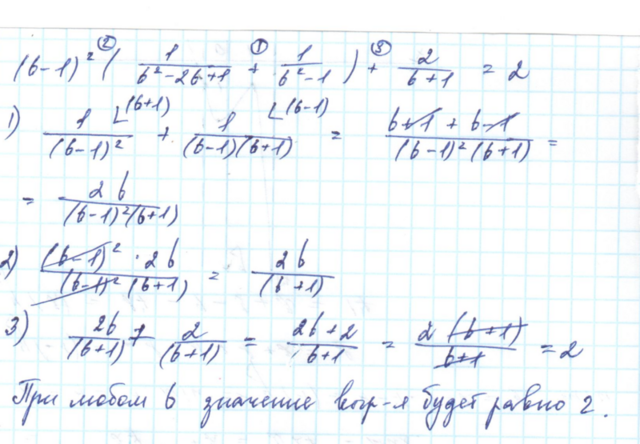 (b-1)² ( 1/(b²-2b+1) + 1/(b²-1) ) + 2/(b+1) = 2
1) 1/(b-1)² + 1/((b-1)(b+1)) = (b+1+b-1)/((b-1)²(b+1)) =
= 2b/((b-1)²(b+1))
2) ((b-1)² · 2b)/((b-1)²(b+1)) = 2b/(b+1)
3) 2b/(b+1) + 2/(b+1) = (2b+2)/(b+1) = 2(b+1)/(b+1) = 2
При любом b значение выр-я будет равно 2.